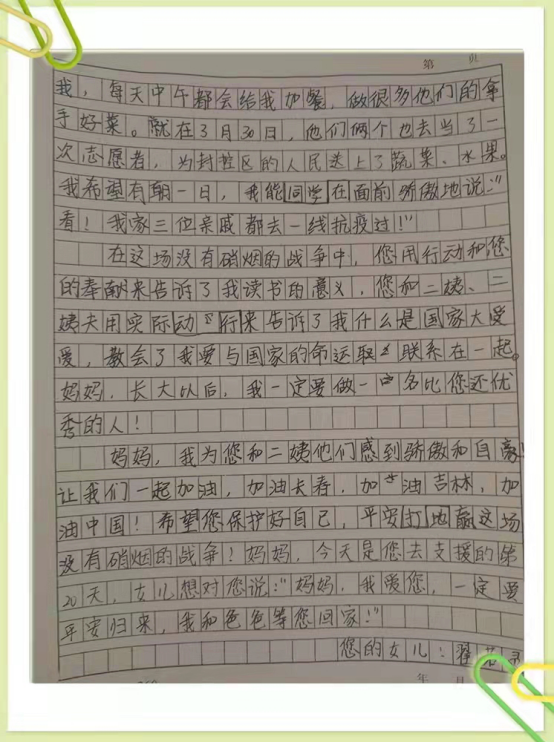 第 页
我，每天中午都会给我加餐，做很多他们的拿
手好菜。就在3月30日，他们俩个也去当了一
次志愿者，为封控区的人民送上了蔬菜、水果。
我希望有朝一日，我能同学在面前骄傲地说："
看！我家三位亲戚都去一线抗疫过！"
在这场没有硝烟的战争中，您用行动和您
的奉献来告诉了我读书的意义，您和二姨、二
姨夫用实际动行来告诉了我什么是国家大爱
爱，教会了我要与国家的命运取联系在一起。
妈妈，长大以后，我一定要做一名比您还优
秀的人！
妈妈，我为您和二姨他们感到骄傲和自豪！
让我们一起加油，加油长春，加油吉林，加
油中国！希望您保护好自己，平安打地赢这场
没有硝烟的战争！妈妈，今天是您去支援的第
20天，女儿想对您说："妈妈，我爱您，一定要
平安归来，我和色色等您回家！"
您的女儿：
年 月